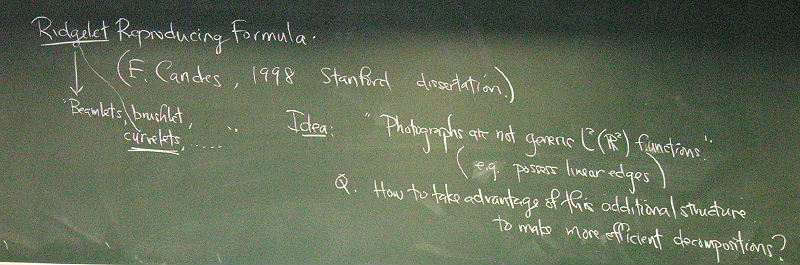 Ridgelet Reproducing Formula.
(E. Candes, 1998 Stanford dissertation)
"Beamlets, brushlet,
curvelets, .....
Idea: "Photographs are not generic L²(R²) functions."
(e.g. possess linear edges)
Q. How to take advantage of this additional structure
to make more efficient decompositions?